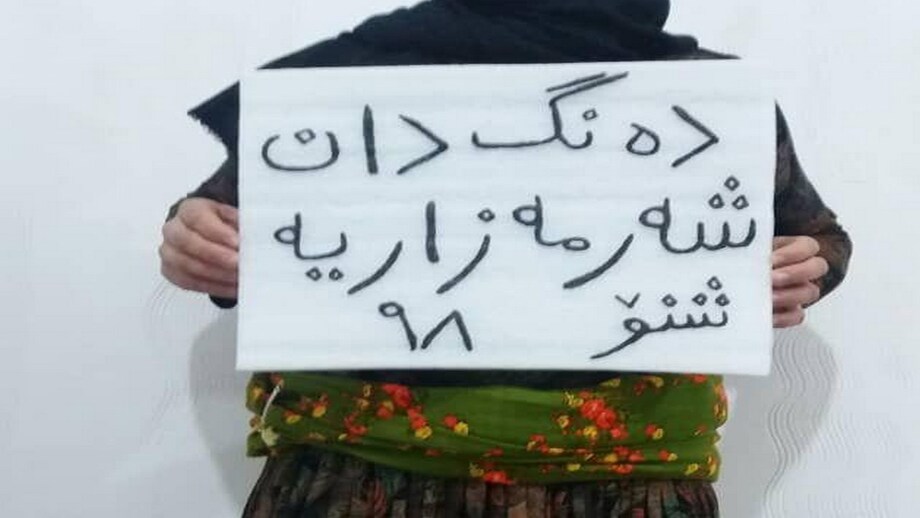 ده نگ دان
شەرمەزاریە
شنۆ ٩٨